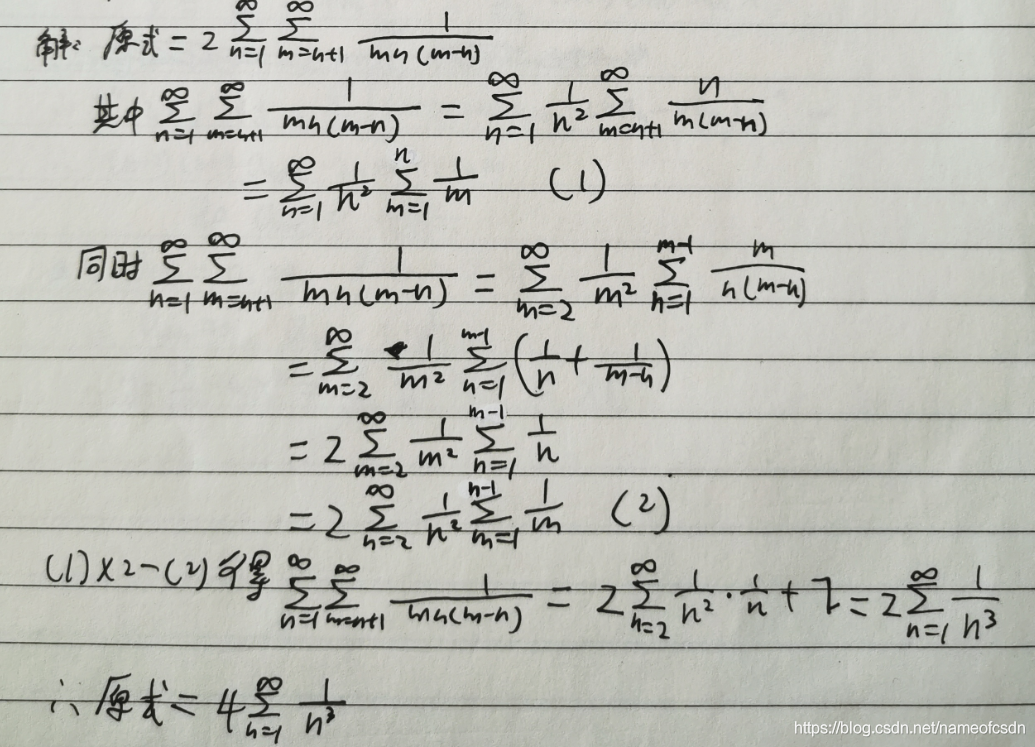 解: 原式 = 2 ∑_{n=1}^{∞} ∑_{m=n+1}^{∞} 1/(mn(m-n))
其中 ∑_{n=1}^{∞} ∑_{m=n+1}^{∞} 1/(mn(m-n)) = ∑_{n=1}^{∞} 1/n² ∑_{m=n+1}^{∞} n/(m(m-n))
= ∑_{n=1}^{∞} 1/n² ∑_{m=1}^{n} 1/m (1)
同时 ∑_{n=1}^{∞} ∑_{m=n+1}^{∞} 1/(mn(m-n)) = ∑_{m=2}^{∞} 1/m² ∑_{n=1}^{m-1} m/(n(m-n))
= ∑_{m=2}^{∞} 1/m² ∑_{n=1}^{m-1} (1/n + 1/(m-n))
= 2 ∑_{m=2}^{∞} 1/m² ∑_{n=1}^{m-1} 1/n
= 2 ∑_{n=2}^{∞} 1/n² ∑_{m=1}^{n-1} 1/m (2)
(1)×2-(2)可得 ∑_{n=1}^{∞} ∑_{m=n+1}^{∞} 1/(mn(m-n)) = 2 ∑_{n=2}^{∞} 1/n² · 1/n + 2 = 2 ∑_{n=1}^{∞} 1/n³
∴ 原式 = 4 ∑_{n=1}^{∞} 1/n³
https://blog.csdn.net/nameofcsdn